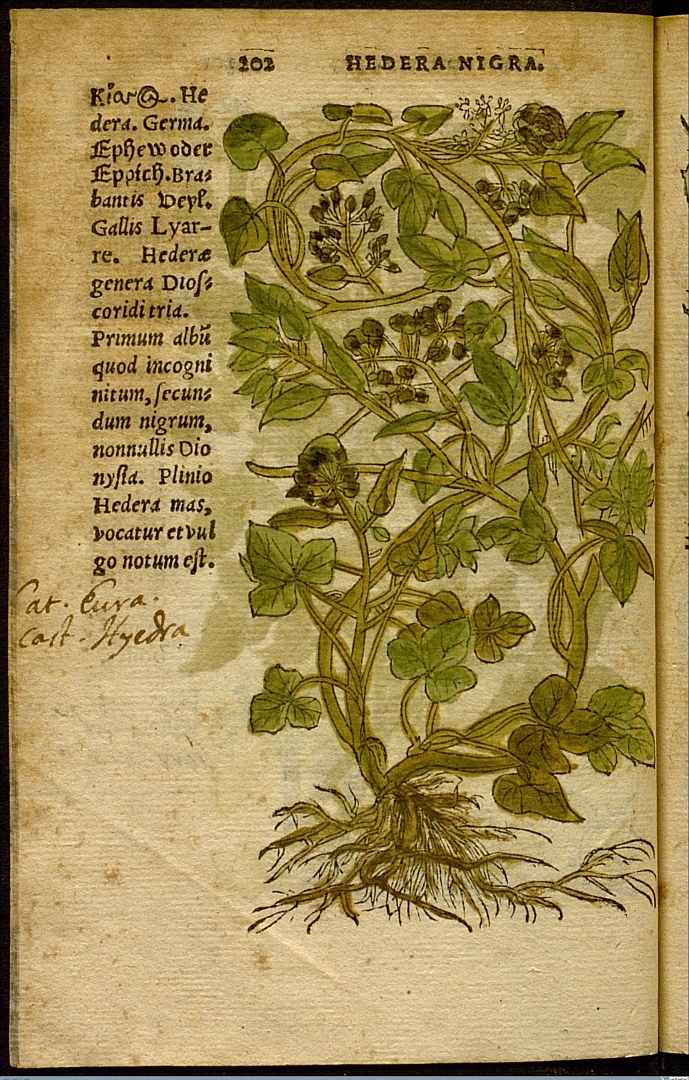 202 HEDERA NIGRA.
Κίσσος. He
dera. Germa.
Ephew oder
Eppich. Bra⸗
bantis Veyl.
Gallis Lyar-
re. Hederæ
genera Dios⸗
coridi tria.
Primum albũ
quod incogni
nitum, secun⸗
dum nigrum,
nonnullis Dio
nysia. Plinio
Hedera mas,
vocatur et vul
go notum est.
Cat. Eura.
Cast. Hyedra